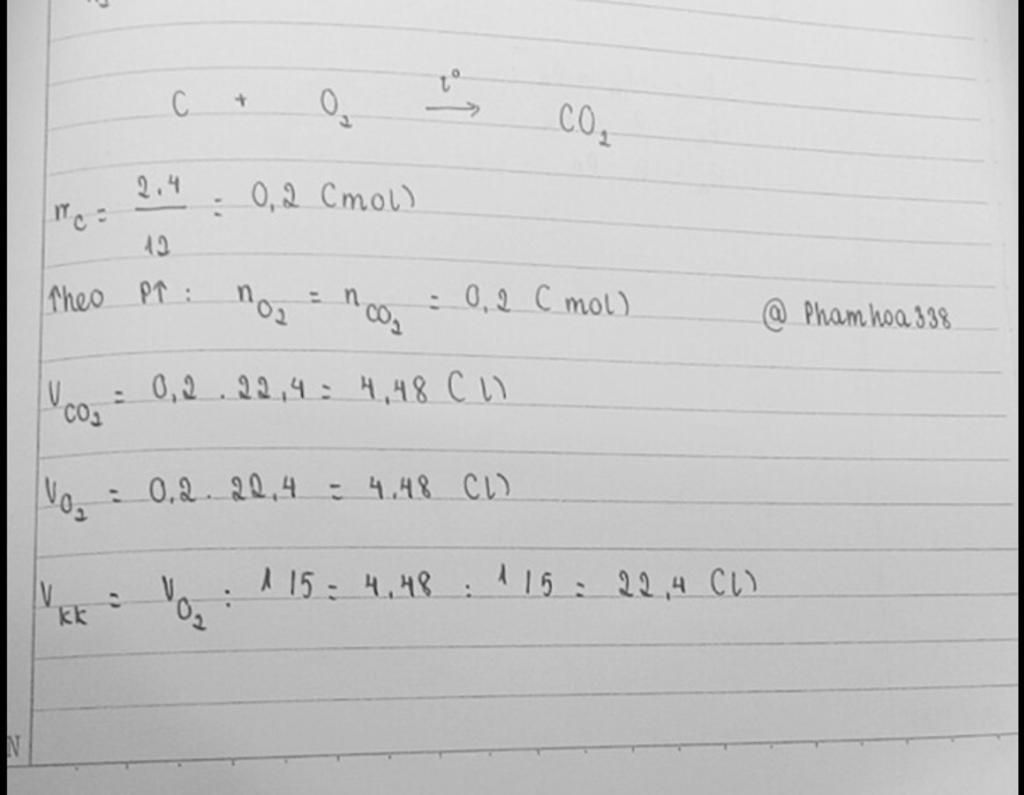 C + O₂ →(t°) CO₂
n_C = 2.4/12 = 0,2 (mol)
Theo PT : n_O₂ = n_CO₂ = 0,2 (mol) @ Phamhoa338
V_CO₂ = 0,2 . 22,4 = 4,48 (l)
V_O₂ = 0,2 . 22,4 = 4.48 (l)
V_kk = V_O₂ : 1/5 = 4,48 : 1/5 = 22,4 (l)
N